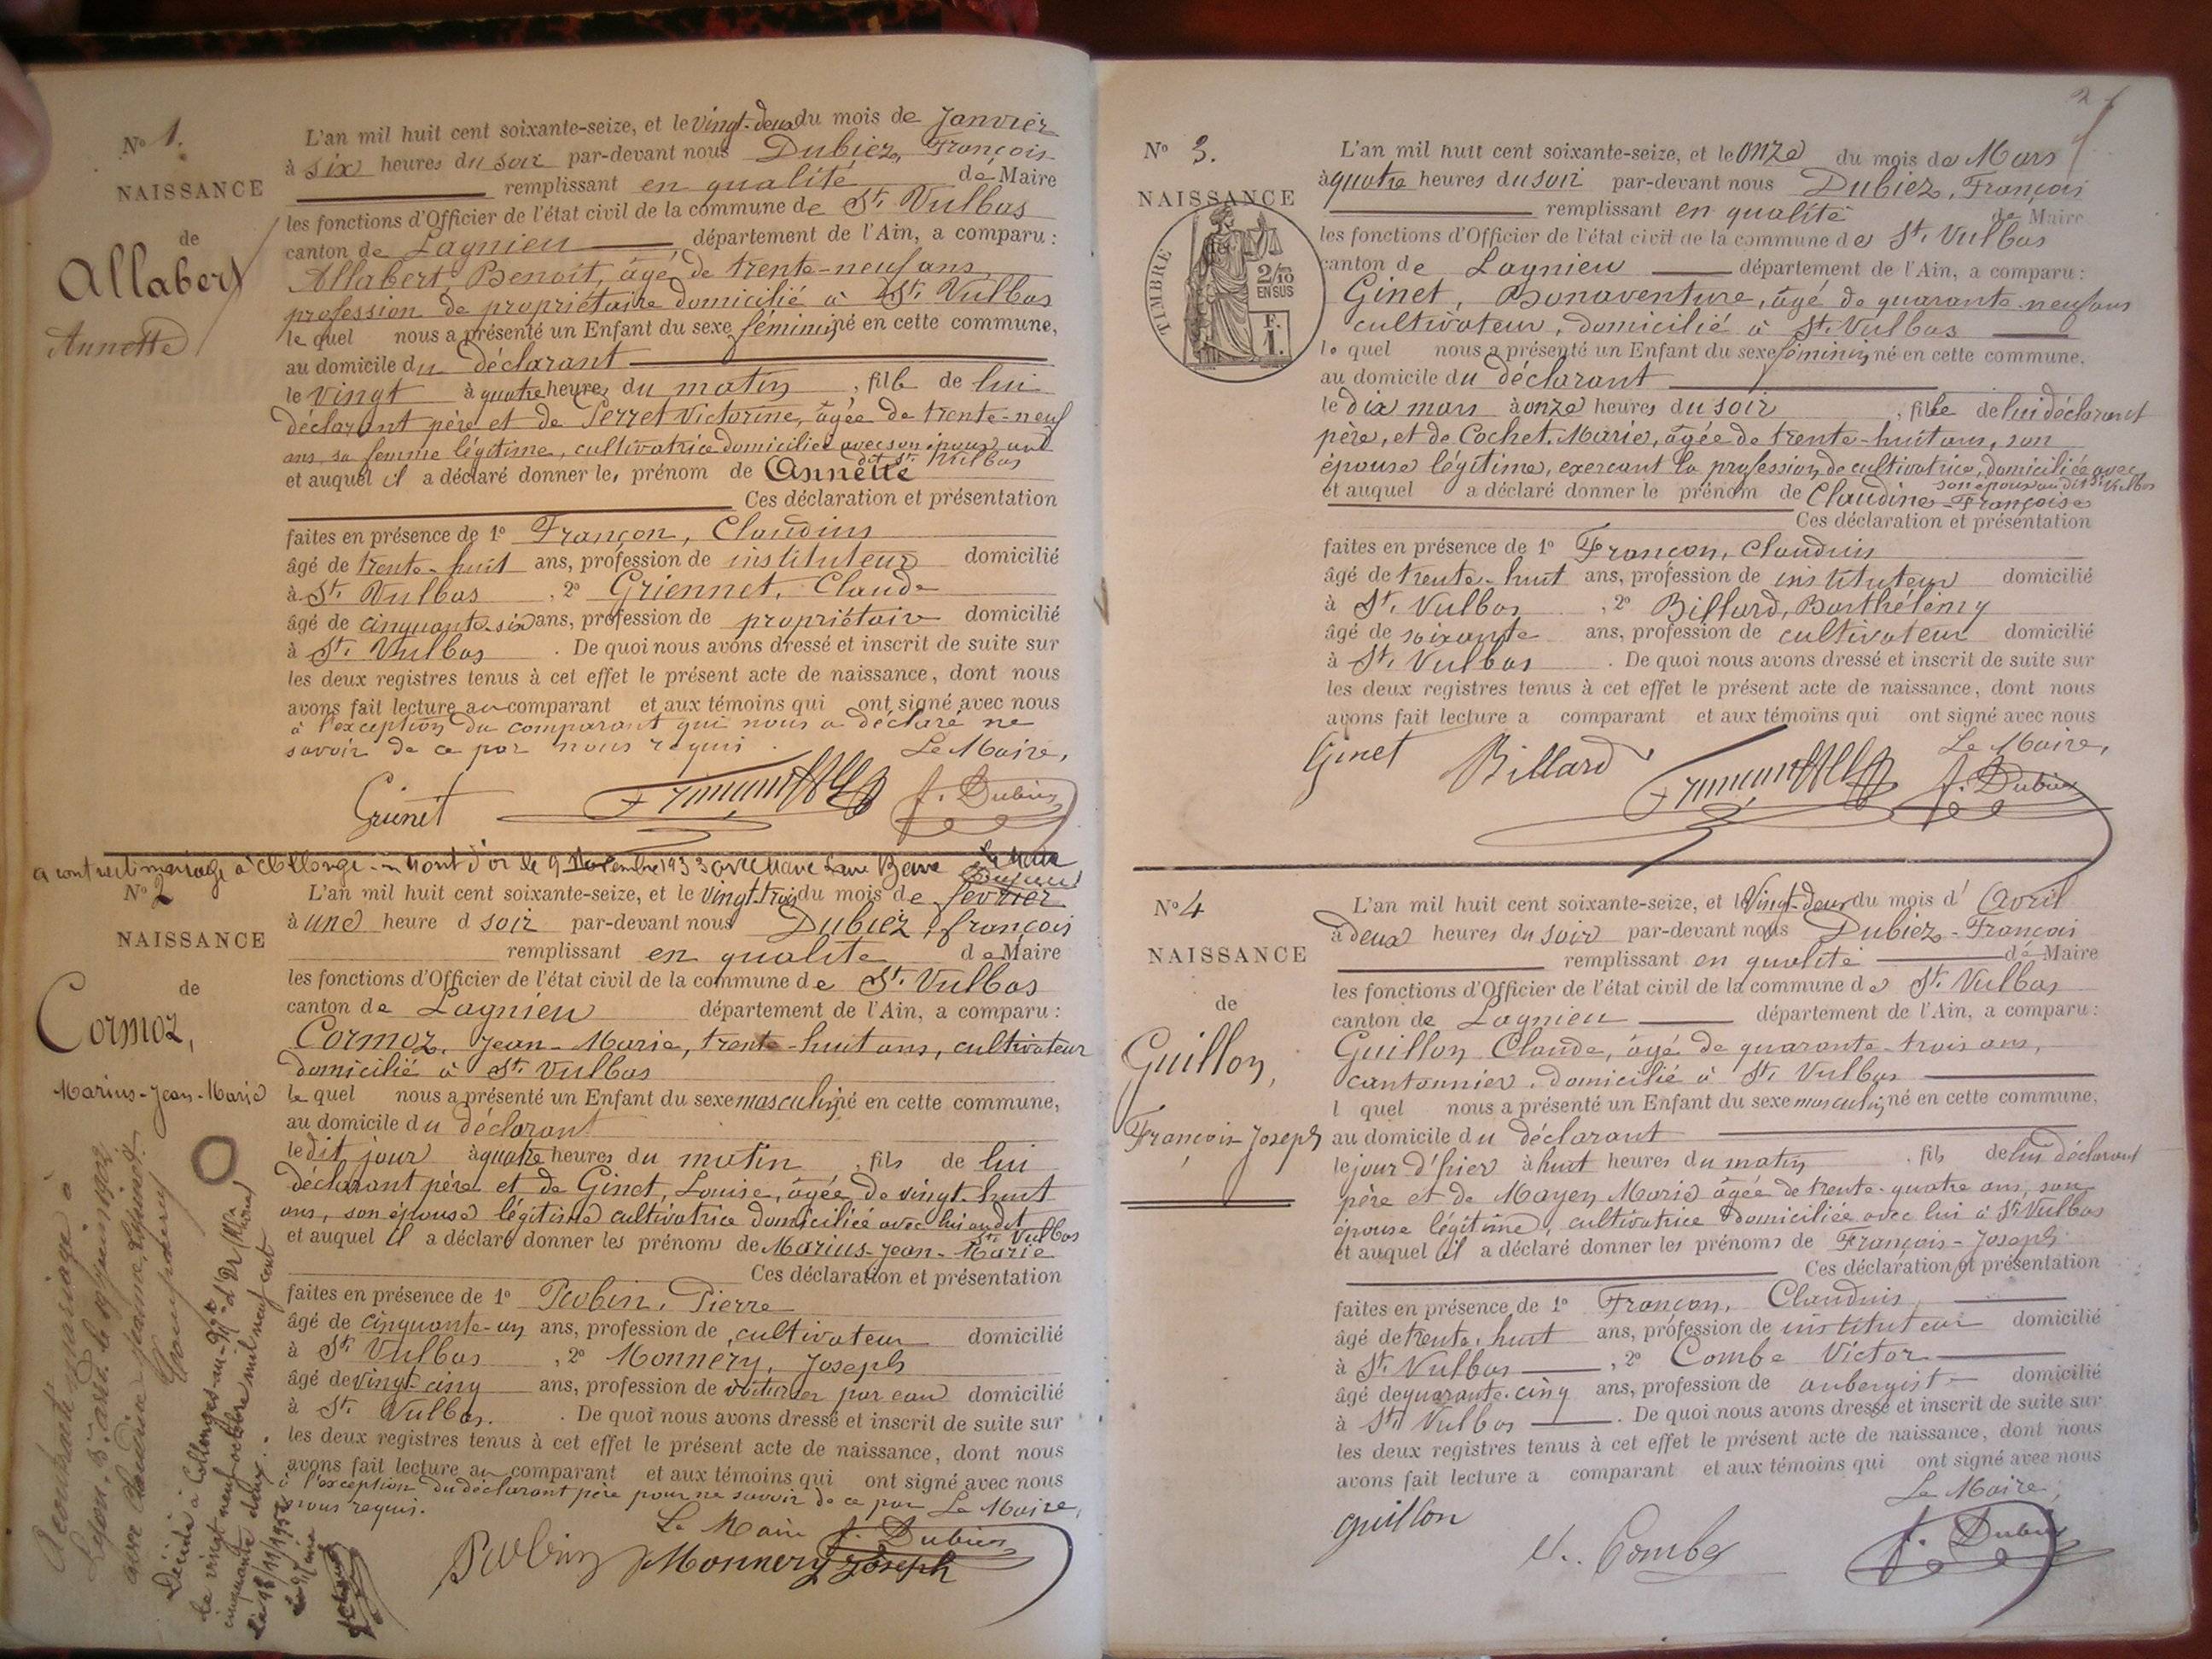 No 1.
NAISSANCE
de
Allabert
Annette
L'an mil huit cent soixante-seize, et le vingt-deux du mois de Janvier
à six heures du soir par-devant nous Dubiez, François
remplissant en qualité de Maire
les fonctions d'Officier de l'état civil de la commune de St. Vulbas
canton de Lagnieu, département de l'Ain, a comparu :
Allabert, Benoit, âgé de trente-neuf ans
profession de propriétaire domicilié à St. Vulbas
le quel nous a présenté un Enfant du sexe féminin né en cette commune,
au domicile du déclarant
le vingt à quatre heures du matin, fille de lui
déclarant père et de Perret Victorine, âgée de trente-neuf
ans, sa femme légitime, cultivatrice domiciliée avec son époux aud
dit St. Vulbas
et auquel il a déclaré donner les prénom de Annette
Ces déclaration et présentation
faites en présence de 1o Françon, Claudius
âgé de trente-huit ans, profession de instituteur domicilié
à St. Vulbas, 2o Griennet, Claude
âgé de cinquante-six ans, profession de propriétaire domicilié
à St. Vulbas. De quoi nous avons dressé et inscrit de suite sur
les deux registres tenus à cet effet le présent acte de naissance, dont nous
avons fait lecture au comparant et aux témoins qui ont signé avec nous
à l'exception du comparant qui nous a déclaré ne
savoir de ce par nous requis. Le Maire,
f. Dubiez
a contracté mariage à Collonges-au-Mont d'or le 9 Novembre 1933 avec
No 2
NAISSANCE
de
Cormoz,
Marius-Jean-Marie
L'an mil huit cent soixante-seize, et le vingt-trois du mois de février
à une heure d soir par-devant nous Dubiez, françois
remplissant en qualité de Maire
les fonctions d'Officier de l'état civil de la commune de St. Vulbas
canton de Lagnieu département de l'Ain, a comparu :
Cormoz, Jean-Marie, trente-huit ans, cultivateur
domicilié à St. Vulbas
le quel nous a présenté un Enfant du sexe masculin né en cette commune,
au domicile du déclarant
le dit jour à quatre heures du matin, fils de lui
déclarant père et de Ginet, Louise, âgée de vingt-huit
ans, son épouse légitime cultivatrice domiciliée avec lui au dit
St. Vulbas
et auquel il a déclaré donner les prénoms de Marius-Jean-Marie
Ces déclaration et présentation
faites en présence de 1o Perbin, Pierre
âgé de cinquante-un ans, profession de cultivateur domicilié
à St. Vulbas, 2o Monnery, Joseph
âgé de vingt-cinq ans, profession de voiturier par eau domicilié
à St. Vulbas. De quoi nous avons dressé et inscrit de suite sur
les deux registres tenus à cet effet le présent acte de naissance, dont nous
avons fait lecture au comparant et aux témoins qui ont signé avec nous
à l'exception du déclarant père pour ne savoir de ce par
nous requis. Le Maire,
Le Maire f. Dubiez
Monnery Joseph
A contracté mariage à
Lyon
avec Claudine Jeanne
Décédé à Collonges-au-Mt d'Or (Rhône)
le vingt neuf octobre mil neuf cent
cinquante deux.
Le 18/11/1952
Le Maire
2
No 3.
NAISSANCE
TIMBRE
2/10
EN SUS
F.
1.
L'an mil huit cent soixante-seize, et le onze du mois de Mars
à quatre heures du soir par-devant nous Dubiez, François
remplissant en qualité de Maire
les fonctions d'Officier de l'état civil de la commune de St. Vulbas
canton de Lagnieu département de l'Ain, a comparu :
Ginet, Bonaventure, âgé de quarante-neuf ans
cultivateur, domicilié à St. Vulbas
le quel nous a présenté un Enfant du sexe féminin né en cette commune,
au domicile du déclarant
le dix mars à onze heures du soir, fille de lui déclarant
père, et de Cochet, Marie, âgée de trente-huit ans, son
épouse légitime, exerçant la profession de cultivatrice, domiciliée avec
son époux au dit St. Vulbas
et auquel a déclaré donner le prénom de Claudine-Françoise
Ces déclaration et présentation
faites en présence de 1o Françon, Claudius
âgé de trente-huit ans, profession de instituteur domicilié
à St. Vulbas, 2o Billard, Barthélémy
âgé de soixante ans, profession de cultivateur domicilié
à St. Vulbas. De quoi nous avons dressé et inscrit de suite sur
les deux registres tenus à cet effet le présent acte de naissance, dont nous
avons fait lecture a comparant et aux témoins qui ont signé avec nous
Le Maire,
Ginet Billard f. Dubiez
No 4
NAISSANCE
de
Guillon,
François-Joseph
L'an mil huit cent soixante-seize, et le Vingt-deux du mois d'Avril
à deux heures du soir par-devant nous Dubiez-François
remplissant en qualité de Maire
les fonctions d'Officier de l'état civil de la commune de St. Vulbas
canton de Lagnieu département de l'Ain, a comparu :
Guillon Claude, âgé de quarante-trois ans,
cantonnier, domicilié à St. Vulbas
l quel nous a présenté un Enfant du sexe masculin né en cette commune,
au domicile du déclarant
le jour d'hier à huit heures du matin, fils de lui déclarant
père et de Mayen Marie âgée de trente-quatre ans, son
épouse légitime, cultivatrice domiciliée avec lui à St. Vulbas
et auquel il a déclaré donner les prénoms de François-Joseph
Ces déclaration et présentation
faites en présence de 1o Françon, Claudius
âgé de trente-huit ans, profession de instituteur domicilié
à St. Vulbas, 2o Combe Victor
âgé de quarante-cinq ans, profession de aubergiste domicilié
à St. Vulbas. De quoi nous avons dressé et inscrit de suite sur
les deux registres tenus à cet effet le présent acte de naissance, dont nous
avons fait lecture a comparant et aux témoins qui ont signé avec nous
Le Maire,
Guillon V. Combe f. Dubiez